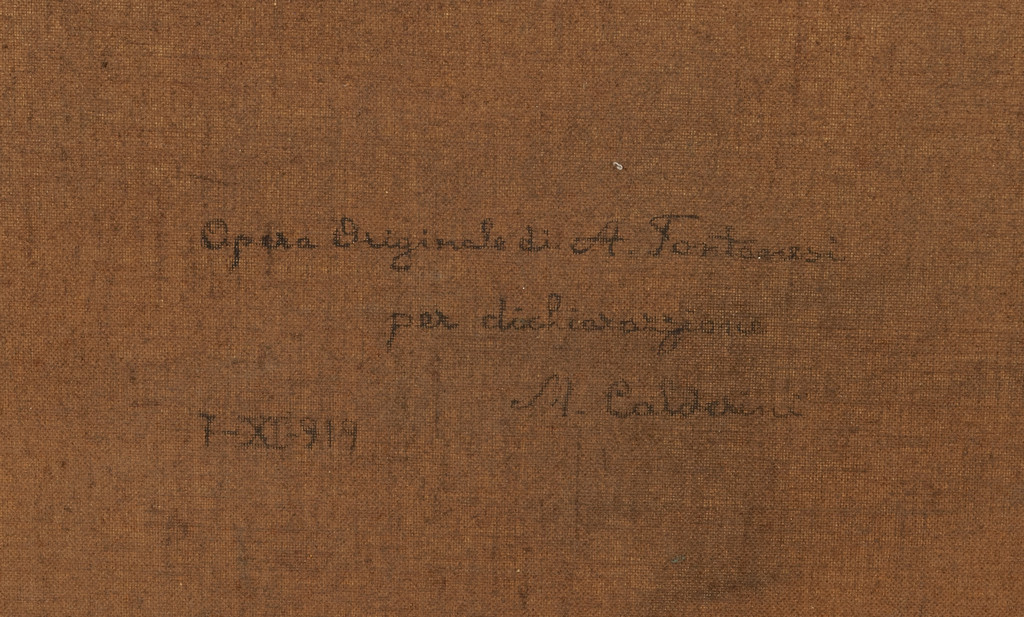 Opera Originale di A. Fontanesi
per dichiarazzione
A. Calderini
7-XI-914